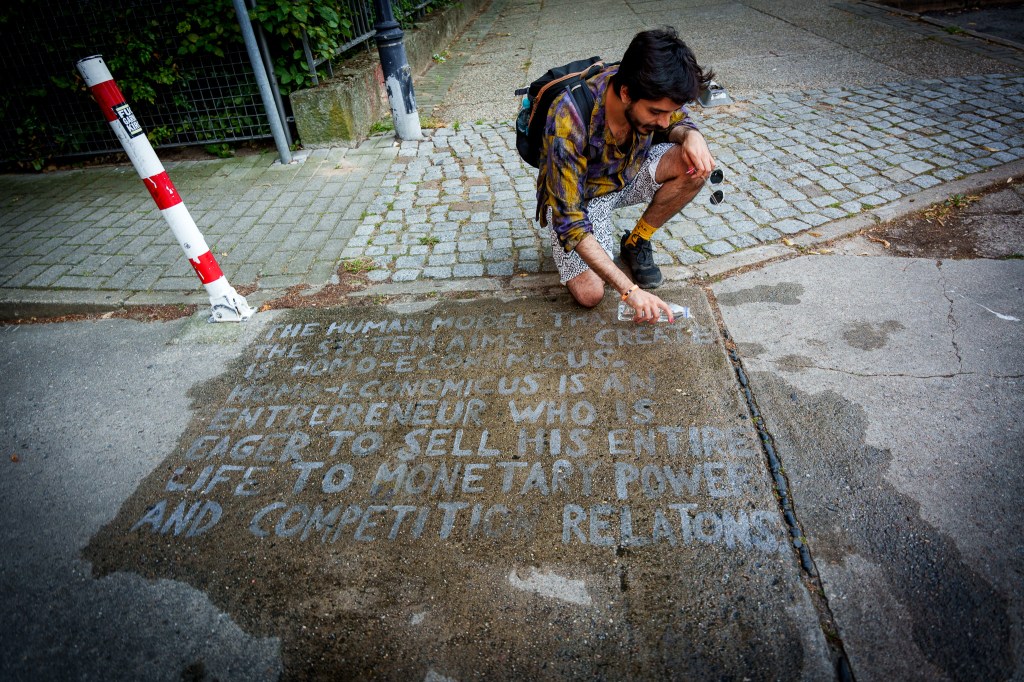 THE HUMAN MODEL THAT
THE SYSTEM AIMS TO CREATE
IS HOMO-ECONOMICUS.
HOMO-ECONOMICUS IS AN
ENTREPRENEUR WHO IS
EAGER TO SELL HIS ENTIRE
LIFE TO MONETARY POWER
AND COMPETITION RELATIONS